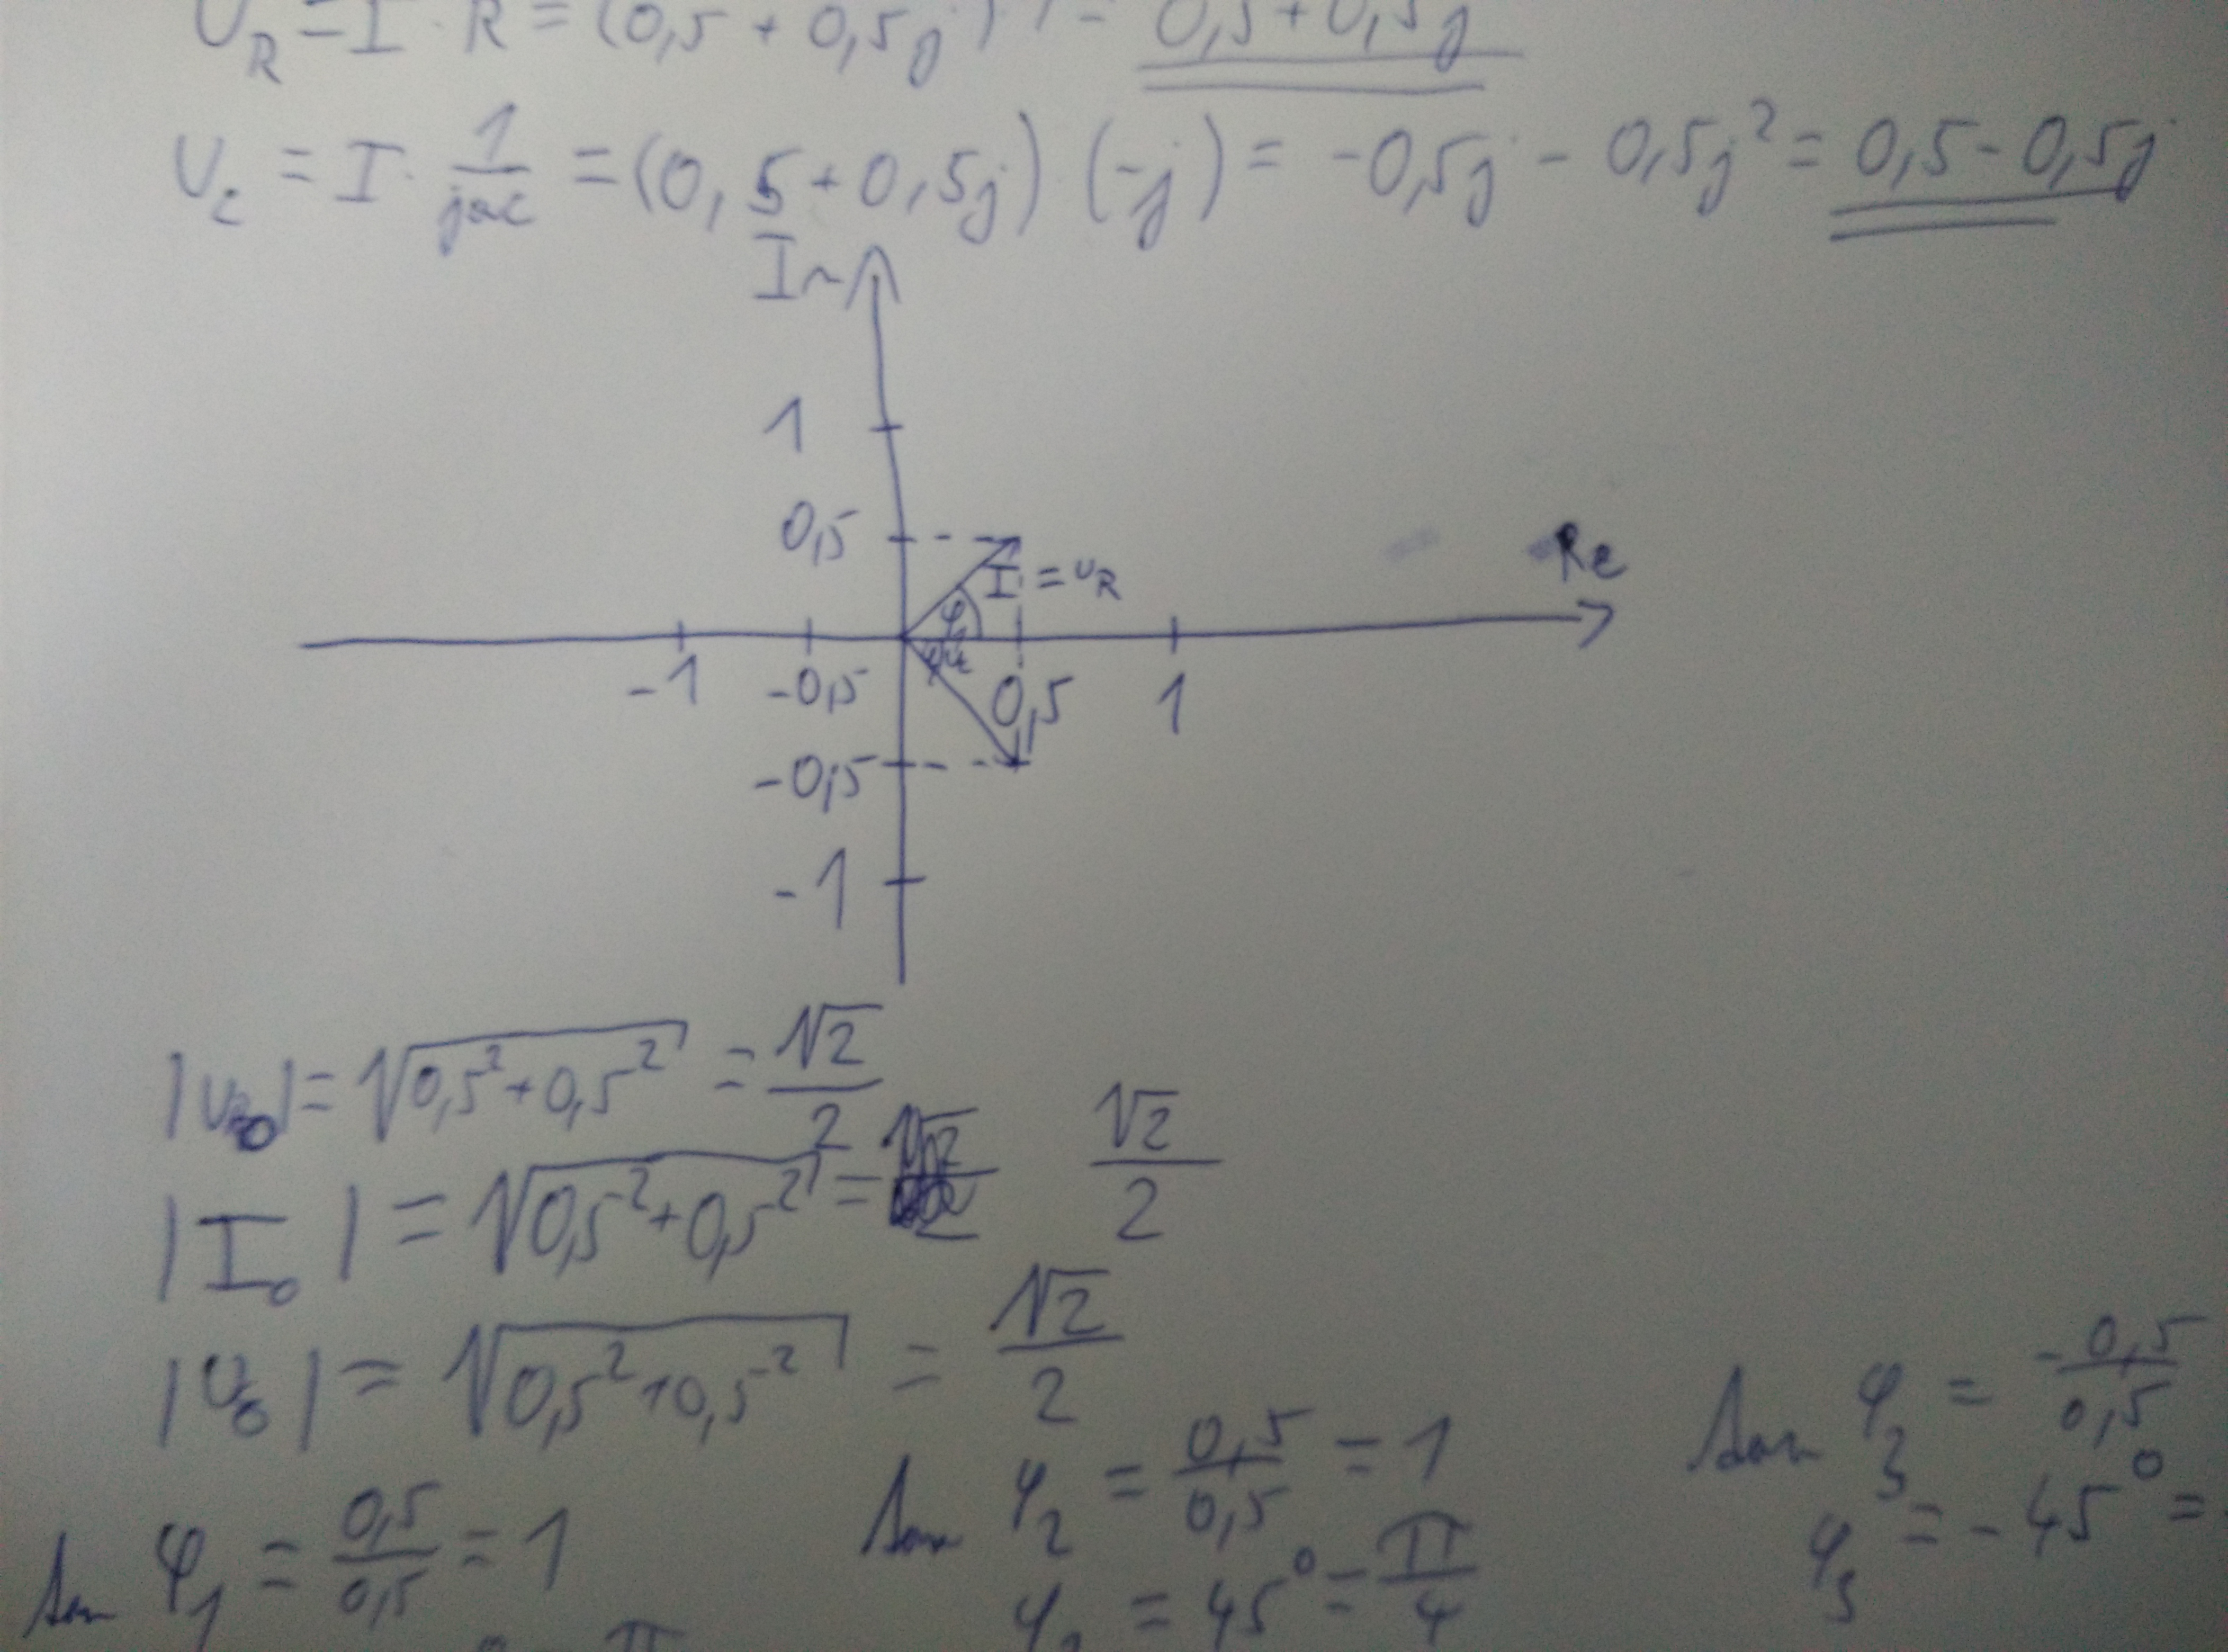 U_R = I · R = (0,5 + 0,5j) · 1 = 0,5 + 0,5j
U_c = I · 1/jωc = (0,5 + 0,5j) · (-j) = -0,5j - 0,5j² = 0,5 - 0,5j
Im
1
0,5
Re
I = U_R
φ
-1 -0,5 0,5 1
-0,5
-1
|U_R0| = √(0,5² + 0,5²) = √2/2
|I_0| = √(0,5² + 0,5²) = √2/2
|U_0| = √(0,5² + 0,5²) = √2/2
tan φ_1 = 0,5/0,5 = 1 tan φ_2 = 0,5/0,5 = 1 tan φ_3 = -0,5/0,5
φ_2 = 45° = π/4 φ_3 = -45° =